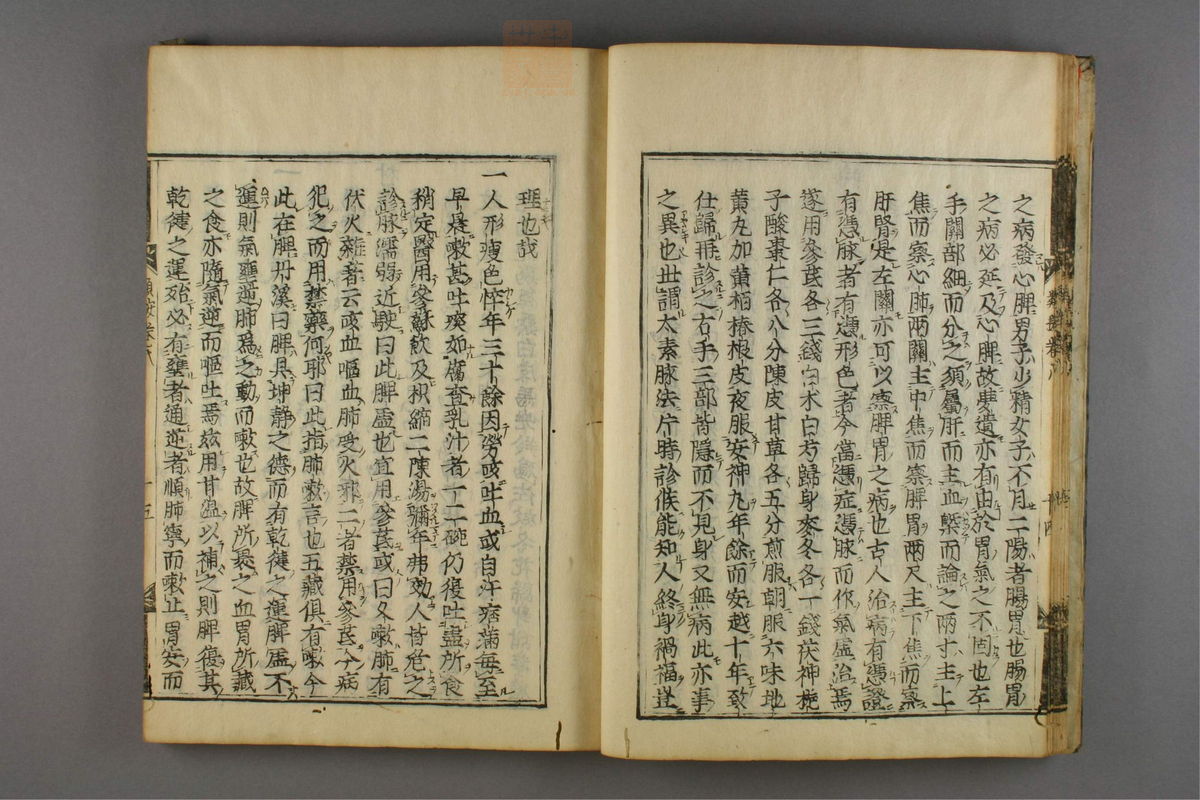 之病發心脾男子少精女子不月二陽者腸胃也腸胃
之病必延及心脾故夢遺亦有由於胃氣之不固也左
手關部細而分之須屬肝而主血槩而論之兩寸主上
焦而察心肺兩關主中焦而察脾胃兩尺主下焦而察
肝腎是左關亦可以察脾胃之病也古人治病有憑證
有憑脉者有憑形色者今當憑症憑脉而作氣虛治焉
遂用參茋各三錢白术白芍歸身麥冬各一錢茯神梔
子酸棗仁各八分陳皮甘草各五分煎服朝服六味地
黄丸加黄栢椿根皮夜服安神九年餘而安越十年致
仕歸再診之右手三部皆隱而不見身又無病此亦事
之異也世謂太素脉法片時診候能知人終身禍福豈
理也哉
一人形瘦色悴年三十餘因勞咳吐血或自汗痞滿每至
早晨嗽甚吐痰如腐查乳汁者一二碗仍復吐盡所食
稍定醫用參蘇飲及枳縮二陳湯彌年弗効人皆危之
診脉濡弱近駛曰此脾虛也宜用參茋或曰久嗽肺有
伏火雜著云咳血嘔血肺受火邪二者禁用參茋今病
犯之而用禁藥何耶曰此指肺嗽言也五藏俱有嗽今
此在脾丹溪曰脾具坤静之德而有乾健之運脾虛不
運則氣壅逆肺爲之動而嗽也故脾所裹之血胃所藏
之食亦隨氣逆而嘔吐焉兹用甘温以補之則脾復其
乾健之運殆必有壅者通逆者順肺寧而嗽止胃安而